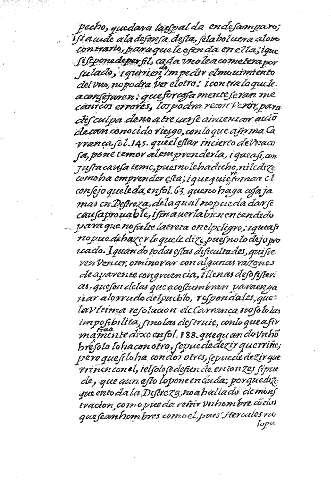 pecho, quedava la espalda en desamparo;
si acude a la defensa, desta, sela bolvera alo
contrario, para que le ofenda en ella; i que
sese pone de perfil, cada uno lea cometera por
su lado, i querien impedir el movimiento
del uno, no podra ver el otro: i contra lo que le
aconsejaron: que forçosamente seran me
canicos errores, los podra reconvertir, para
disculpa de no atreverse a in tentar acciō
de tan conocido riesgo, con lo que afirma Ca
rrança, fol. 145. que el estar incierto de una co
sa, pone temor al emprenderla, i que asi, con
justa causa teme, pues no le ha dicho, ni le dize
como ha emprender esta; i que quieren tomar el
consejo que le da en fol. 63. que no haga casa ja
mas en Destreza, de la qual no pueda dar se
causa provable, i sin averla bien entendido
para que no falte la tierra en el peligro: i que asi
no puede hazer lo que le dize, pues no lo dejo pro
vado. I quando todas estas dificultades, quisie
ren Vencer, o minorar con algunas razones
de aparente congruencia, illenas de sofisteri
as, que son de las que acostumbran para enga
ñar al o rrudo del pueblo, respondales, que
la ultima resolucion de Carrança no solo las
imposibilita, sino las destruie, con lo que afir
mamente dixo en fol. 188. que quando Un hō
bre solo lo ha con otro, se puede dezir que riñe;
pero que si lo ha con dos otros, se puede dezir que
riñen con el, i el solo se defiende, entonzes si pue
de, que aun esto lo pone en duda; porque dize
que en toda la Destreza, no a hallado demons
tracion, como pueda reñir Un hombre a dos
que sean hombres como el, pues Hercules no
lo pu